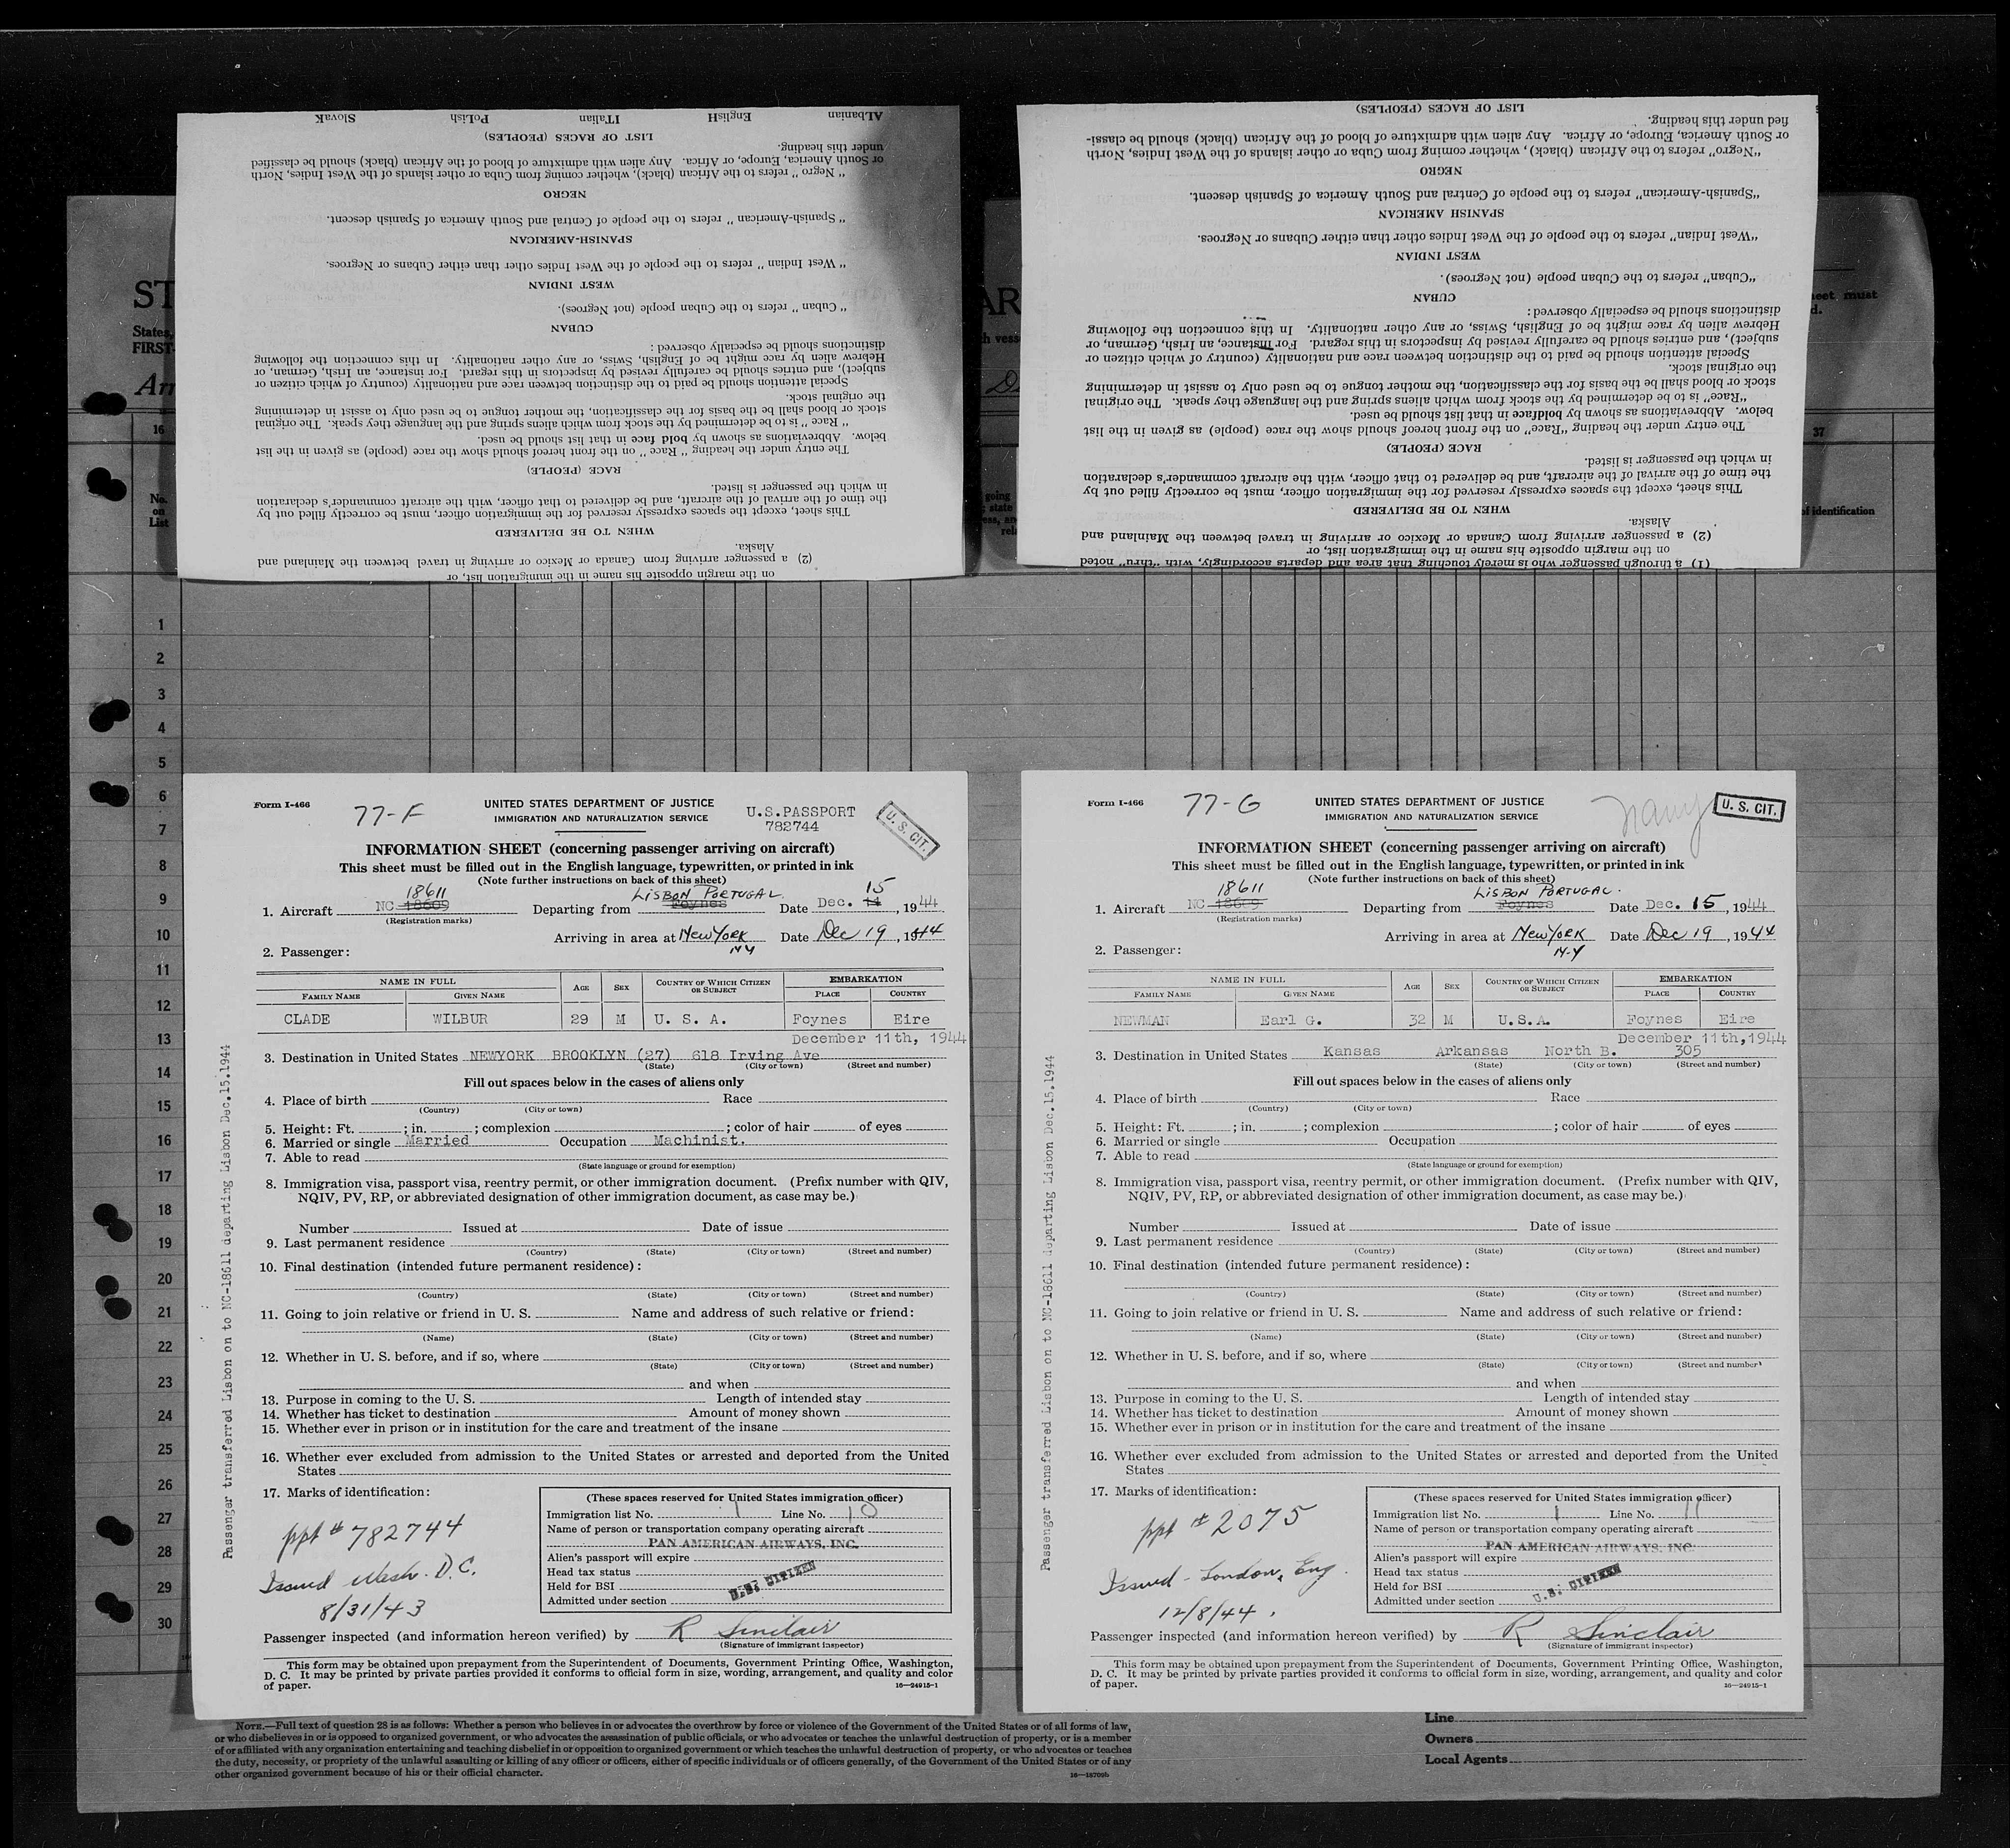 ALbanian EnglisH ITalian PoLisH SlovaK
LIST OF RACES (PEOPLES)
under this heading.
or South America, Europe, or Africa. Any alien with admixture of blood of the African (black) should be classified
"Negro" refers to the African (black), whether coming from Cuba or other islands of the West Indies, North
NEGRO
"Spanish-American" refers to the people of Central and South America of Spanish descent.
SPANISH-AMERICAN
"West Indian" refers to the people of the West Indies other than either Cubans or Negroes.
WEST INDIAN
"Cuban" refers to the Cuban people (not Negroes).
CUBAN
distinctions should be especially observed:
Hebrew alien by race might be of English, Swiss, or any other nationality. In this connection the following
subject), and entries should be carefully revised by inspectors in this regard. For instance, an Irish, German, or
Special attention should be paid to the distinction between race and nationality (country of which citizen or
the original stock.
stock or blood shall be the basis for the classification, the mother tongue to be used only to assist in determining
"Race" is to be determined by the stock from which aliens spring and the language they speak. The original
below. Abbreviations as shown by bold face in that list should be used.
The entry under the heading "Race" on the front hereof should show the race (people) as given in the list
RACE (PEOPLE)
in which the passenger is listed.
the time of the arrival of the aircraft, and be delivered to that officer, with the aircraft commander's declaration
This sheet, except the spaces expressly reserved for the immigration officer, must be correctly filled out by
WHEN TO BE DELIVERED
Alaska.
(2) a passenger arriving from Canada or Mexico or arriving in travel between the Mainland and
on the margin opposite his name in the immigration list, or
LIST OF RACES (PEOPLES)
fied under this heading.
or South America, Europe, or Africa. Any alien with admixture of blood of the African (black) should be classi-
"Negro" refers to the African (black), whether coming from Cuba or other islands of the West Indies, North
NEGRO
"Spanish-American" refers to the people of Central and South America of Spanish descent.
SPANISH AMERICAN
"West Indian" refers to the people of the West Indies other than either Cubans or Negroes.
WEST INDIAN
"Cuban" refers to the Cuban people (not Negroes).
CUBAN
distinctions should be especially observed:
Hebrew alien by race might be of English, Swiss, or any other nationality. In this connection the following
subject), and entries should be carefully revised by inspectors in this regard. For instance, an Irish, German, or
Special attention should be paid to the distinction between race and nationality (country of which citizen or
the original stock.
stock or blood shall be the basis for the classification, the mother tongue to be used only to assist in determining
"Race" is to be determined by the stock from which aliens spring and the language they speak. The original
below. Abbreviations as shown by boldface in that list should be used.
The entry under the heading "Race" on the front hereof should show the race (people) as given in the list
RACE (PEOPLE)
in which the passenger is listed.
the time of the arrival of the aircraft, and be delivered to that officer, with the aircraft commander's declaration
This sheet, except the spaces expressly reserved for the immigration officer, must be correctly filled out by
WHEN TO BE DELIVERED
Alaska.
(2) a passenger arriving from Canada or Mexico or arriving in travel between the Mainland and
on the margin opposite his name in the immigration list, or
(1) a through passenger who is merely touching that area and departs accordingly, with "thru" noted
ST
States,
FIRST-
AR
eet must
16
37
No.
on
List
going
state
of identification
1
2
3
4
5
6
7
8
9
10
11
12
13
14
15
16
17
18
19
20
21
22
23
24
25
26
27
28
29
30
Form I-466
77-F
UNITED STATES DEPARTMENT OF JUSTICE
IMMIGRATION AND NATURALIZATION SERVICE
U.S.PASSPORT
782744
U. S. CIT.
INFORMATION SHEET (concerning passenger arriving on aircraft)
This sheet must be filled out in the English language, typewritten, or printed in ink
(Note further instructions on back of this sheet)
18611 LISBON PORTUGAL. 15
1. Aircraft NC 18609 Departing from Foynes Date Dec. 14, 1944
(Registration marks)
Arriving in area at New York N Y Date Dec 19, 1944
2. Passenger:
NAME IN FULL AGE SEX COUNTRY OF WHICH CITIZEN OR SUBJECT EMBARKATION
FAMILY NAME GIVEN NAME PLACE COUNTRY
CLADE WILBUR 29 M U. S. A. Foynes Eire
December 11th, 1944
3. Destination in United States NEWYORK BROOKLYN (27) 618 Irving Ave
(State) (City or town) (Street and number)
Fill out spaces below in the cases of aliens only
4. Place of birth Race
(Country) (City or town)
5. Height: Ft. ; in. ; complexion ; color of hair of eyes
6. Married or single Married Occupation Machinist.
7. Able to read
(State language or ground for exemption)
8. Immigration visa, passport visa, reentry permit, or other immigration document. (Prefix number with QIV,
NQIV, PV, RP, or abbreviated designation of other immigration document, as case may be.)
Number Issued at Date of issue
9. Last permanent residence
(Country) (State) (City or town) (Street and number)
10. Final destination (intended future permanent residence):
(Country) (State) (City or town) (Street and number)
11. Going to join relative or friend in U. S. Name and address of such relative or friend:
(Name) (State) (City or town) (Street and number)
12. Whether in U. S. before, and if so, where
(State) (City or town) (Street and number)
and when
13. Purpose in coming to the U. S. Length of intended stay
14. Whether has ticket to destination Amount of money shown
15. Whether ever in prison or in institution for the care and treatment of the insane
16. Whether ever excluded from admission to the United States or arrested and deported from the United
States
17. Marks of identification:
ppt # 782744
Issued Wash. D.C.
8/31/43
(These spaces reserved for United States immigration officer)
Immigration list No. 1 Line No. 10
Name of person or transportation company operating aircraft
PAN AMERICAN AIRWAYS, INC.
Alien's passport will expire
Head tax status
Held for BSI
U.S. CITIZEN
Admitted under section
Passenger inspected (and information hereon verified) by R Sinclair
(Signature of immigrant inspector)
This form may be obtained upon prepayment from the Superintendent of Documents, Government Printing Office, Washington,
D. C. It may be printed by private parties provided it conforms to official form in size, wording, arrangement, and quality and color
of paper. 16—24915-1
Passenger transferred Lisbon on to NC-18611 departing Lisbon Dec.15.1944
Form I-466
77-G
UNITED STATES DEPARTMENT OF JUSTICE
IMMIGRATION AND NATURALIZATION SERVICE
U. S. CIT.
INFORMATION SHEET (concerning passenger arriving on aircraft)
This sheet must be filled out in the English language, typewritten, or printed in ink
(Note further instructions on back of this sheet)
18611 LISBON PORTUGAL.
1. Aircraft NC 18609 Departing from Foynes Date Dec. 15, 1944
(Registration marks)
Arriving in area at New York N-Y Date Dec 19, 1944
2. Passenger:
NAME IN FULL AGE SEX COUNTRY OF WHICH CITIZEN OR SUBJECT EMBARKATION
FAMILY NAME GIVEN NAME PLACE COUNTRY
NEWMAN Earl G. 32 M U.S.A. Foynes Eire
December 11th,1944
3. Destination in United States Kansas Arkansas North B. 305
(State) (City or town) (Street and number)
Fill out spaces below in the cases of aliens only
4. Place of birth Race
(Country) (City or town)
5. Height: Ft. ; in. ; complexion ; color of hair of eyes
6. Married or single Occupation
7. Able to read
(State language or ground for exemption)
8. Immigration visa, passport visa, reentry permit, or other immigration document. (Prefix number with QIV,
NQIV, PV, RP, or abbreviated designation of other immigration document, as case may be.)
Number Issued at Date of issue
9. Last permanent residence
(Country) (State) (City or town) (Street and number)
10. Final destination (intended future permanent residence):
(Country) (State) (City or town) (Street and number)
11. Going to join relative or friend in U. S. Name and address of such relative or friend:
(Name) (State) (City or town) (Street and number)
12. Whether in U. S. before, and if so, where
(State) (City or town) (Street and number)
and when
13. Purpose in coming to the U. S. Length of intended stay
14. Whether has ticket to destination Amount of money shown
15. Whether ever in prison or in institution for the care and treatment of the insane
16. Whether ever excluded from admission to the United States or arrested and deported from the United
States
17. Marks of identification:
ppt # 2075
Issued - London, Eng.
12/8/44.
(These spaces reserved for United States immigration officer)
Immigration list No. 1 Line No. 11
Name of person or transportation company operating aircraft
PAN AMERICAN AIRWAYS, INC.
Alien's passport will expire
Head tax status
Held for BSI
U.S. CITIZEN
Admitted under section
Passenger inspected (and information hereon verified) by R Sinclair
(Signature of immigrant inspector)
This form may be obtained upon prepayment from the Superintendent of Documents, Government Printing Office, Washington,
D. C. It may be printed by private parties provided it conforms to official form in size, wording, arrangement, and quality and color
of paper. 16—24915-1
Passenger transferred Lisbon on to NC-18611 departing Lisbon Dec.15.1944
NOTE.—Full text of question 28 is as follows: Whether a person who believes in or advocates the overthrow by force or violence of the Government of the United States or of all forms of law,
or who disbelieves in or is opposed to organized government, or who advocates the assassination of public officials, or who advocates or teaches the unlawful destruction of property, or is a member
of or affiliated with any organization entertaining and teaching disbelief in or opposition to organized government or which teaches the unlawful destruction of property, or who advocates or teaches
the duty, necessity, or propriety of the unlawful assaulting or killing of any officer or officers, either of specific individuals or of officers generally, of the Government of the United States or of any
other organized government because of his or their official character. 16—18709b
Line
Owners
Local Agents